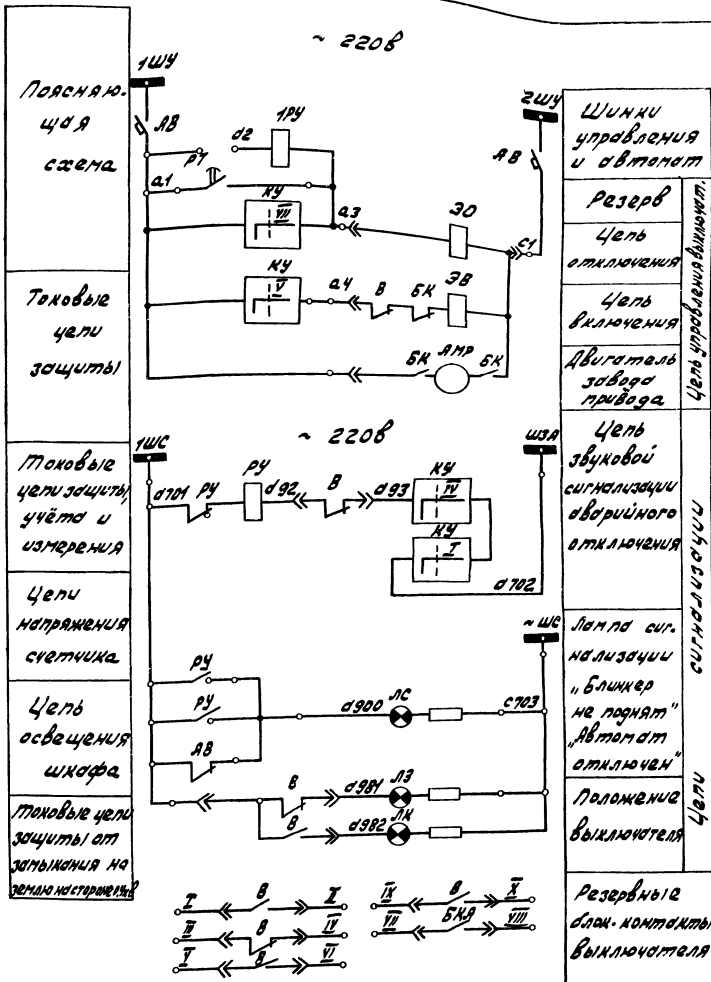 Поясняю-
щая
схема
Токовые
цепи
защиты
Токовые
цепи защиты,
учёта и
измерения
Цепи
напряжения
счетчика
Цепь
освещения
шкафа
Токовые цепи
защиты от
замыкания на
~ 220в
1ШУ
АВ
d2
1РУ
РТ
а1
КУ
VII
а3
ЭО
2ШУ
АВ
С1
КУ
V
а4
В
БК
ЭВ
БК
АМР
БК
~ 220в
1ШС
d701
РУ
РУ
d92
В
d93
КУ
IV
КУ
I
d702
ШЗА
~ ШС
РУ
РУ
АВ
d900
ЛС
С703
В
d981
ЛЗ
В
d982
ЛК
I
В
II
III
В
IV
V
В
VI
IX
В
X
VII
БКА
VIII
Шинки
управления
и автомат
Резерв
Цепь
отключения
Цепь
включения
Двигатель
завода
привода
Цепь управления выключат.
Цепь
звуковой
сигнализации
аварийного
отключения
Лампа сиг-
нализации
„Блинкер
не поднят"
„Автомат
отключен"
Положение
выключателя
Цепи сигнализации
Резервные
блок-контакты
выключателя